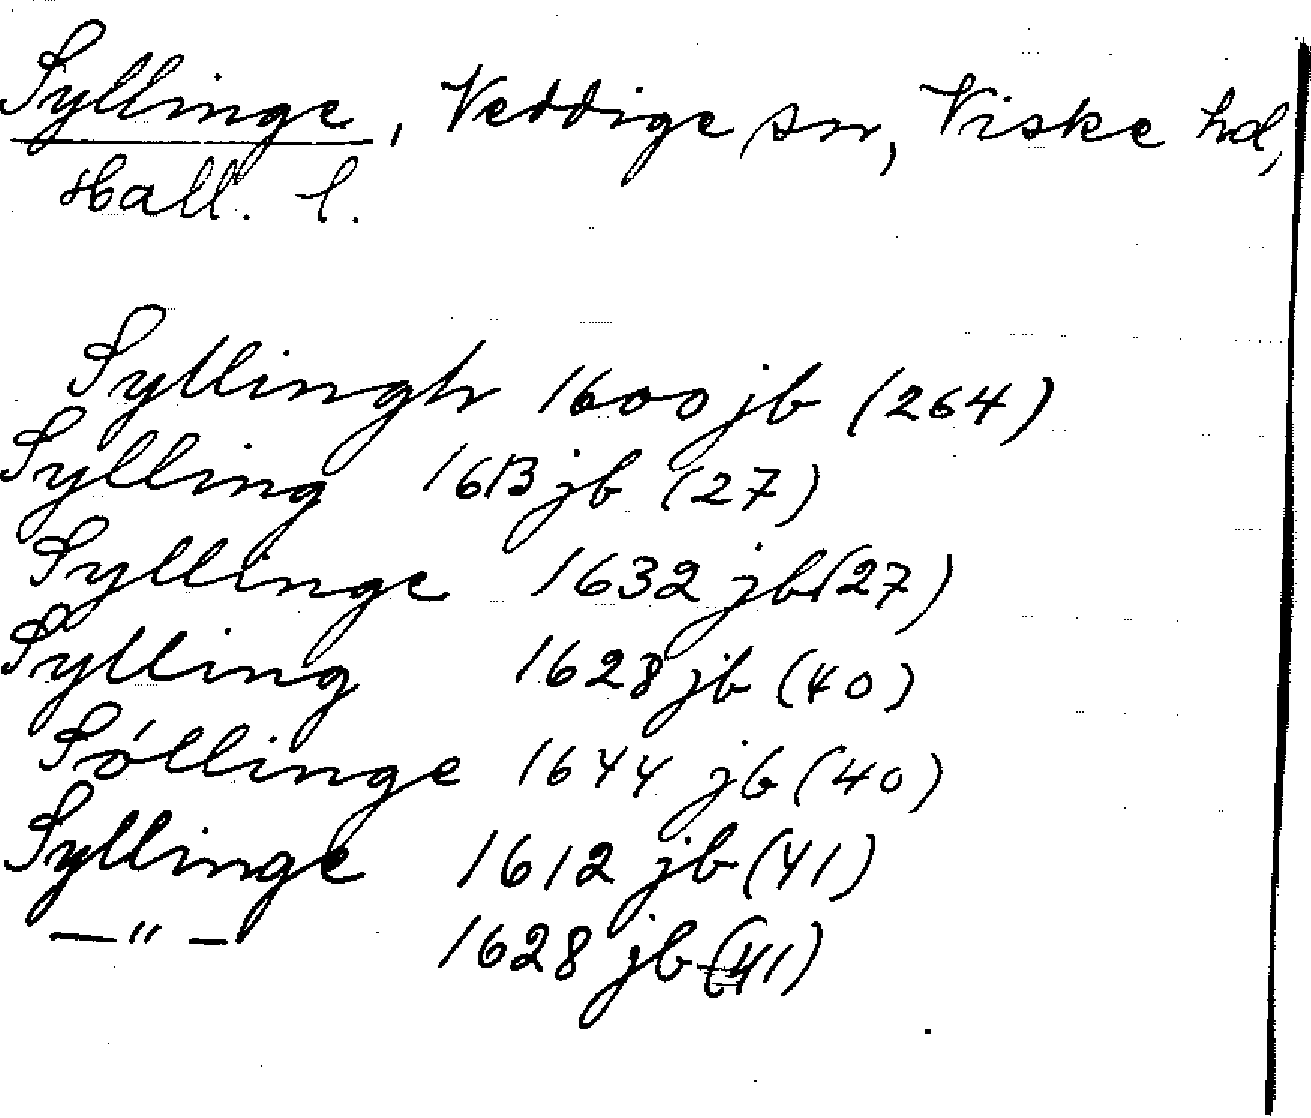 Syllinge, Veddige sn, Viske hd,
Hall. l.
Syllingh 1600 jb (264)
Sylling 1613 jb (27)
Syllinge 1632 jb (27)
Sylling 1628 jb (40)
Söllinge 1644 jb (40)
Syllinge 1612 jb (41)
—"— 1628 jb (41)